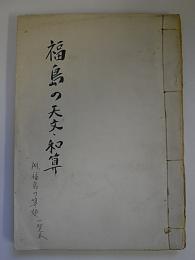 福島の天文・和算
附、福島の算額一覧表